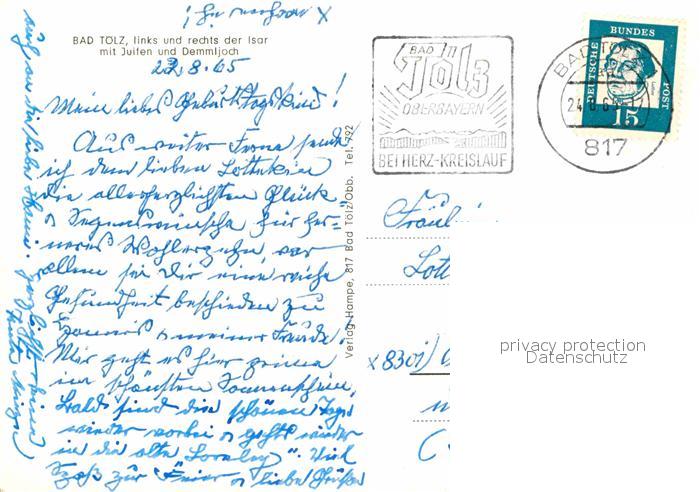 BAD TÖLZ, links und rechts der Isar
mit Juifen und Demmljoch
22.8.65
Meine liebes Geburtstagskind!
Aus weiter Ferne sende
ich dem lieben Lottekin
die allerherzlichsten Glück-
u Segenswünsche für fer-
neres Wohlergehn, vor
allem sei Dir eine reiche
Gesundheit beschieden zu
u meiner Freude!
Mir geht es hier prima
im schönsten Sonnenschein,
bald sind die schönen Tage
wieder vorbei u gehts wieder
in die alte Loreley". Viel
Spaß zur Feier u liebe Grüße
Verlag Hampe, 817 Bad Tölz/Obb. Tel. 792
BAD
Tölz
OBERBAYERN
BEI HERZ-KREISLAUF
BAD TÖLZ
817
DEUTSCHE
BUNDES
POST
15
Fräul
Lott
x 8301)
privacy protection
Datenschutz